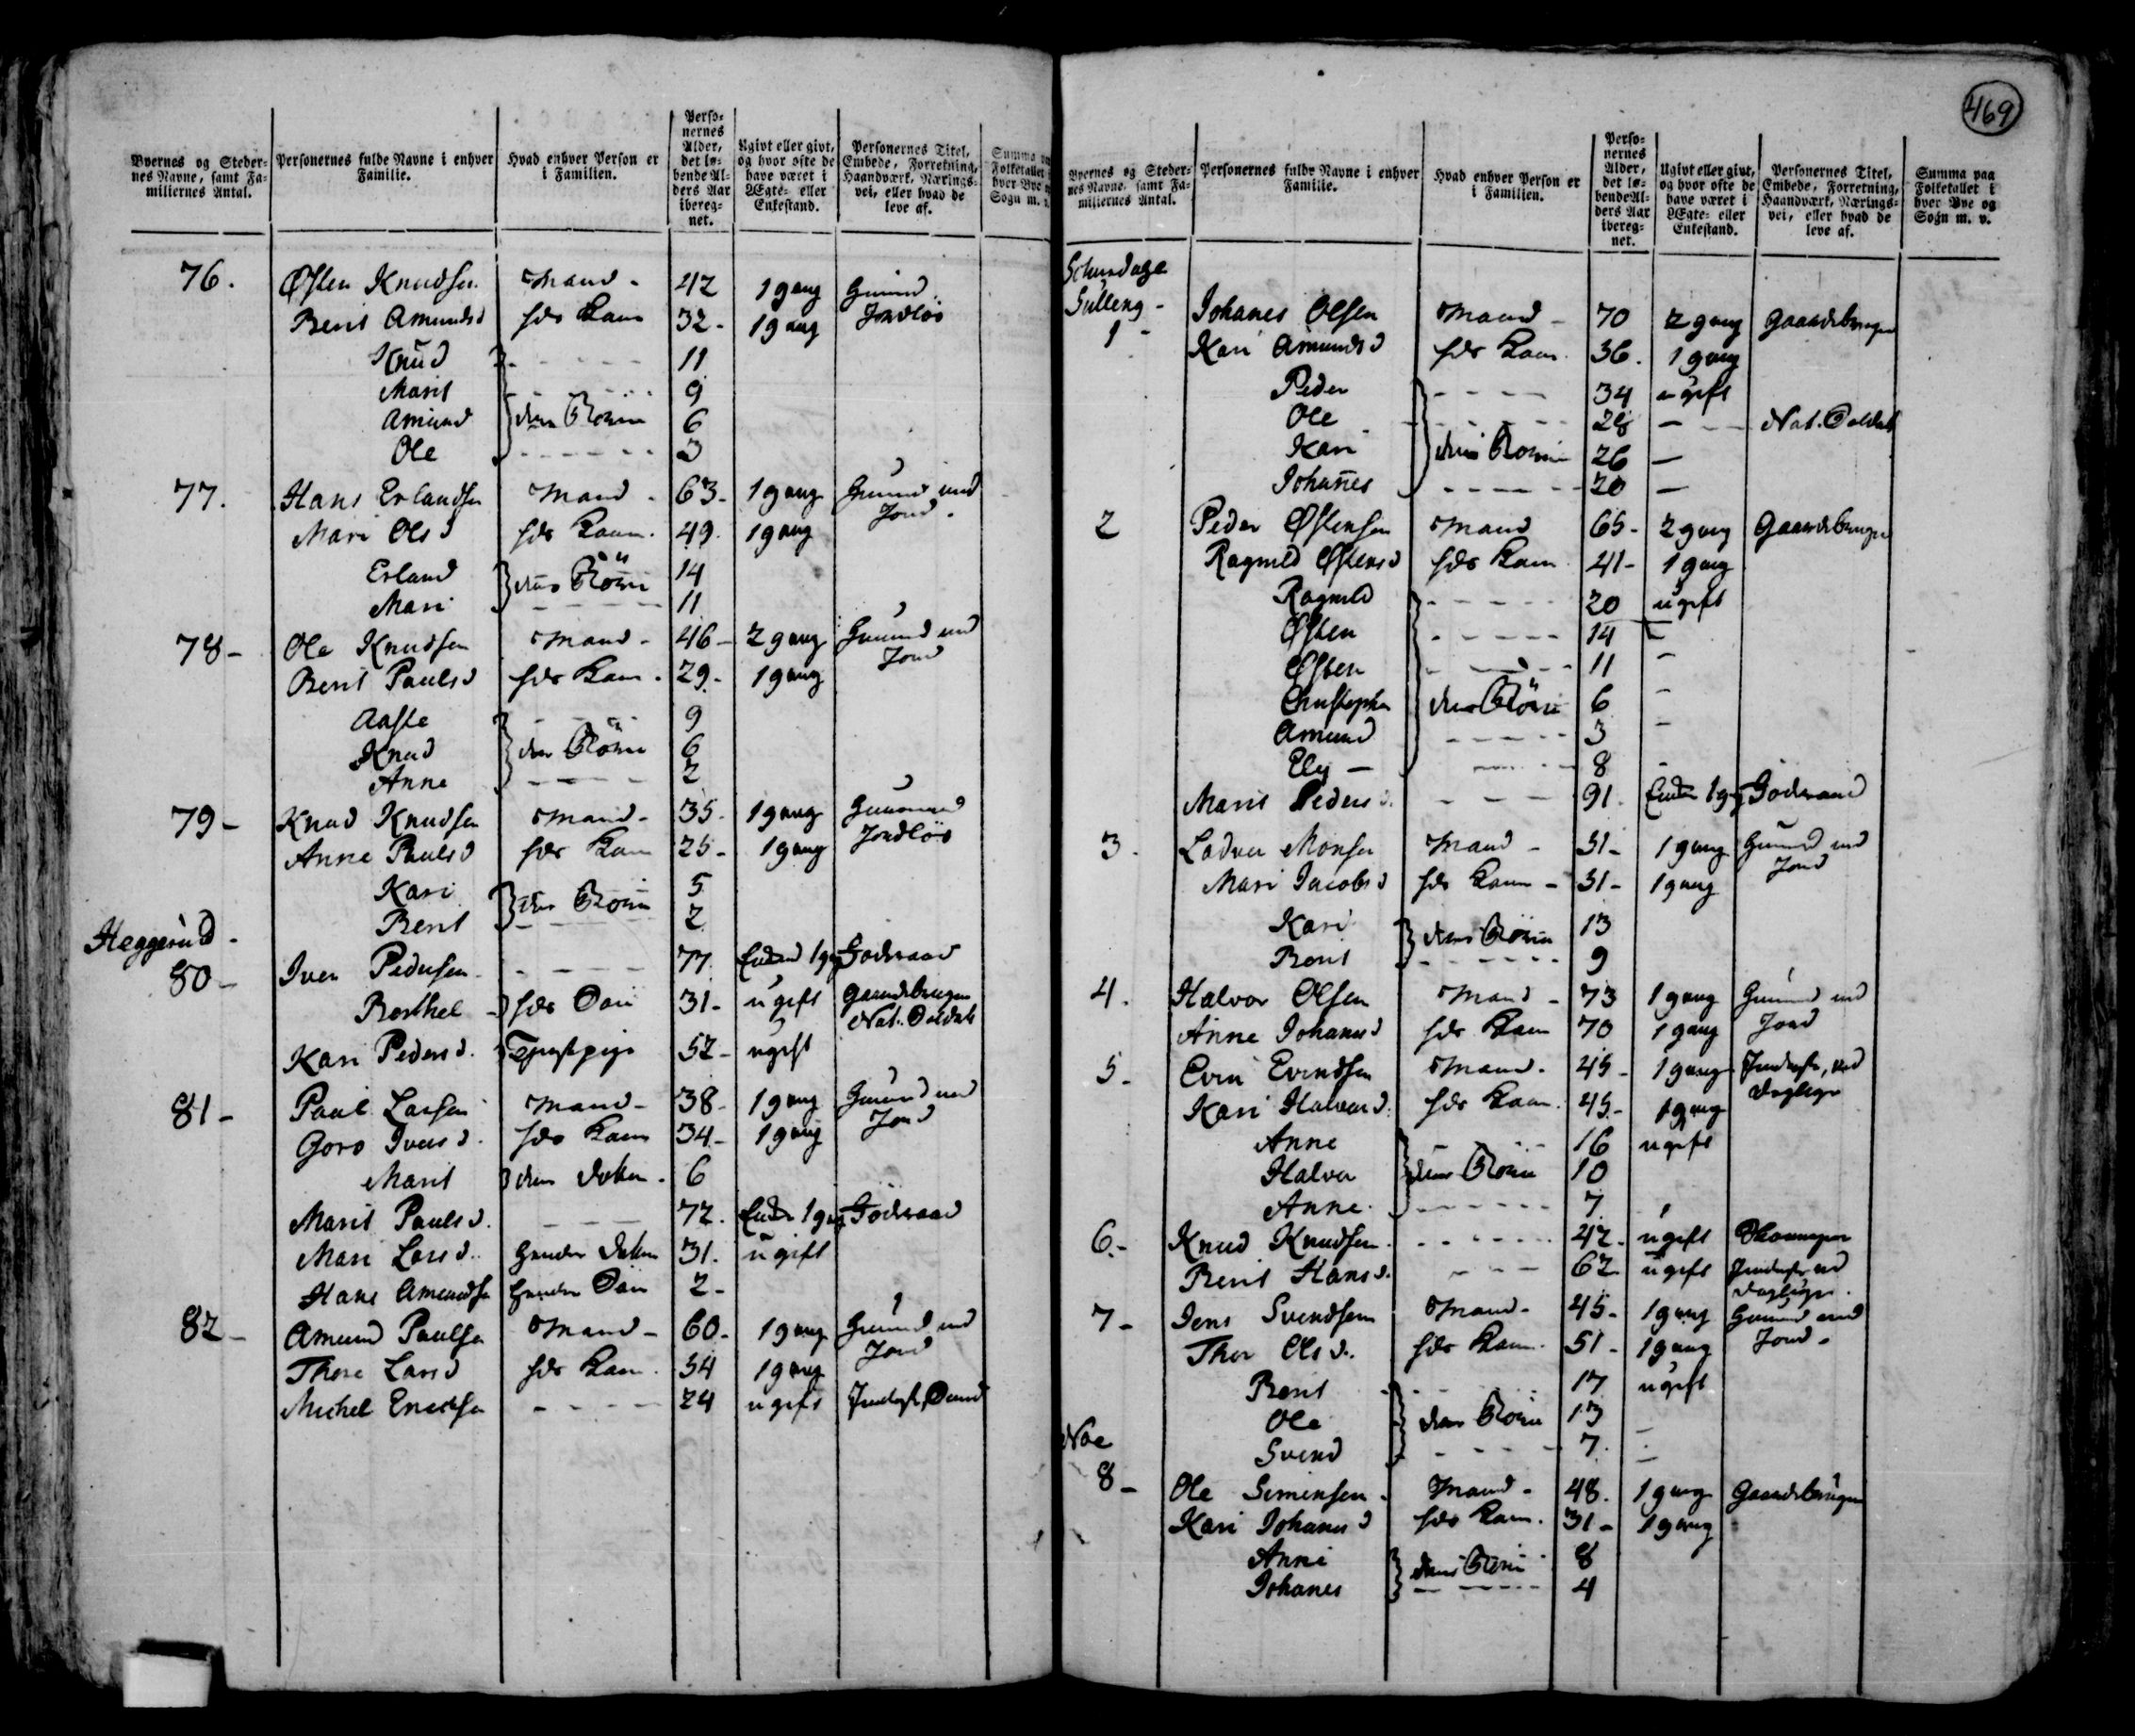 Byernes og Steder=
nes Navne, samt Fa=
miliernes Antal.
Personernes fulde Navne i enhver
Familie.
Hvad enhver Person er
i Familien.
Perso=
nernes
Alder,
det lø=
bende Al=
ders Aar
ibereg=
net.
Ugivt eller givt,
og hvor ofte de
have været i
Ægte= eller
Enkestand.
Personernes Titel,
Embede, Forretning,
Haandværk, Nærings=
vei, eller hvad de
leve af.
76. Østen Knudsen Mand - 42 1 gang Huusmd
Berit Amundsd hds Kone 32 - 1 gang Jordløs
Knud 11
Marit 9
Amund deres Børn 6
Ole 3
77. Hans Erlandsen Mand - 63 - 1 gang Huusmd med
Mari Olsd hds Kone 49. 1 gang Jord.
Erland deres Børn 14
Mari 11
78 - Ole Knudsen Mand - 46 - 2 gang Huusmd med
Berit Paulsd hds Kone. 29. 1 gang Jord
Aaste 9
Knud deres Børn 6
Anne 2
79 - Knud Knudsen Mand - 35. 1 gang Huusmand
Anne Paulsd hds Kone 25 - 1 gang Jordløs
Kari deres Børn 5
Berit 2
Heggerud -
80 - Iver Pedersen 77. 1 g
Berthel hds Søn 31 - ugift Gaardbruger
Nat. Soldat
Kari Pedersd. 52 - ugift
81 - Paul Larsen Mand - 38 - 1 gang Huusmd med
Goro Iversd. hds Kone 34 - 1 gang Jord
Marit deres Datter. 6
Marit Paulsd. 72. 1 gang
Mari Larsd. hendes Datter 31. ugift
Hans Amundsen hendes Søn 2 -
82 - Amund Paulsen Mand - 60 - 1 gang Huusmd med
Thore Larsd hds Kone. 54 1 gang Jord
Michel Ericksen 24 ugift
469
Byernes og Steder=
nes Navne, samt Fa=
miliernes Antal.
Personernes fulde Navne i enhver
Familie.
Hvad enhver Person er
i Familien.
Perso=
nernes
Alder,
det lø=
bende Al=
ders Aar
ibereg=
net.
Ugivt eller givt,
og hvor ofte de
have været i
Ægte= eller
Enkestand.
Personernes Titel,
Embede, Forretning,
Haandværk, Nærings=
vei, eller hvad de
leve af.
Summa paa
Folketallet i
hver Bye og
Sogn m. v.
1 - Johanes Olsen Mand - 70 2 gang Gaardbruger
Kari Amundsd hds Kone. 36. 1 gang
Peder 34 ugift
Ole 28 — Nat. Soldat
Kari deres Børn 26 —
Johanes 20 —
2 Peder Østensen Mand 65 - 2 gang Gaardbruger
Ragnild Østensd hds Kone 41 - 1 gang
Ragnild 20 ugift
Østen 14 -
Østen 11 -
Christopher deres Børn 6 -
Amund 3 -
Ely — 8 -
Marit Pedersd. 91. 1 g
3. Ladver Monsen Mand - 31 - 1 gang Huusmd med
Mari Jacobsd hds Kone - 31 - 1 gang Jord
Kari deres Børn 13
Berit 9
4. Halvor Olsen Mand - 73 1 gang Huusmd med
Anne Johanesd hds Kone 70 1 gang Jord
5. Evin Evindsen Mand. 45 - 1 gang
Kari Halvorsd. hds Kone. 45 - 1 gang
Anne 16 ugift
Halvor deres Børn 10
Anne. 7.
6. - Knud Knudsen. 42. ugift
Berit Hansd. 62. ugift
7 - Jens Svendsen Mand - 45 - 1 gang Huusmd med
Thor Olsd. hds Kone. 51 - 1 gang Jord -
Berit 17 ugift
Ole deres Børn 13 -
Svend 7. -
Noe
8 - Ole Simensen. Mand - 48. 1 gang Gaardbruger
Kari Johanesd hds Kone. 31 - 1 gang
Anne deres Børn 8
Johanes 4